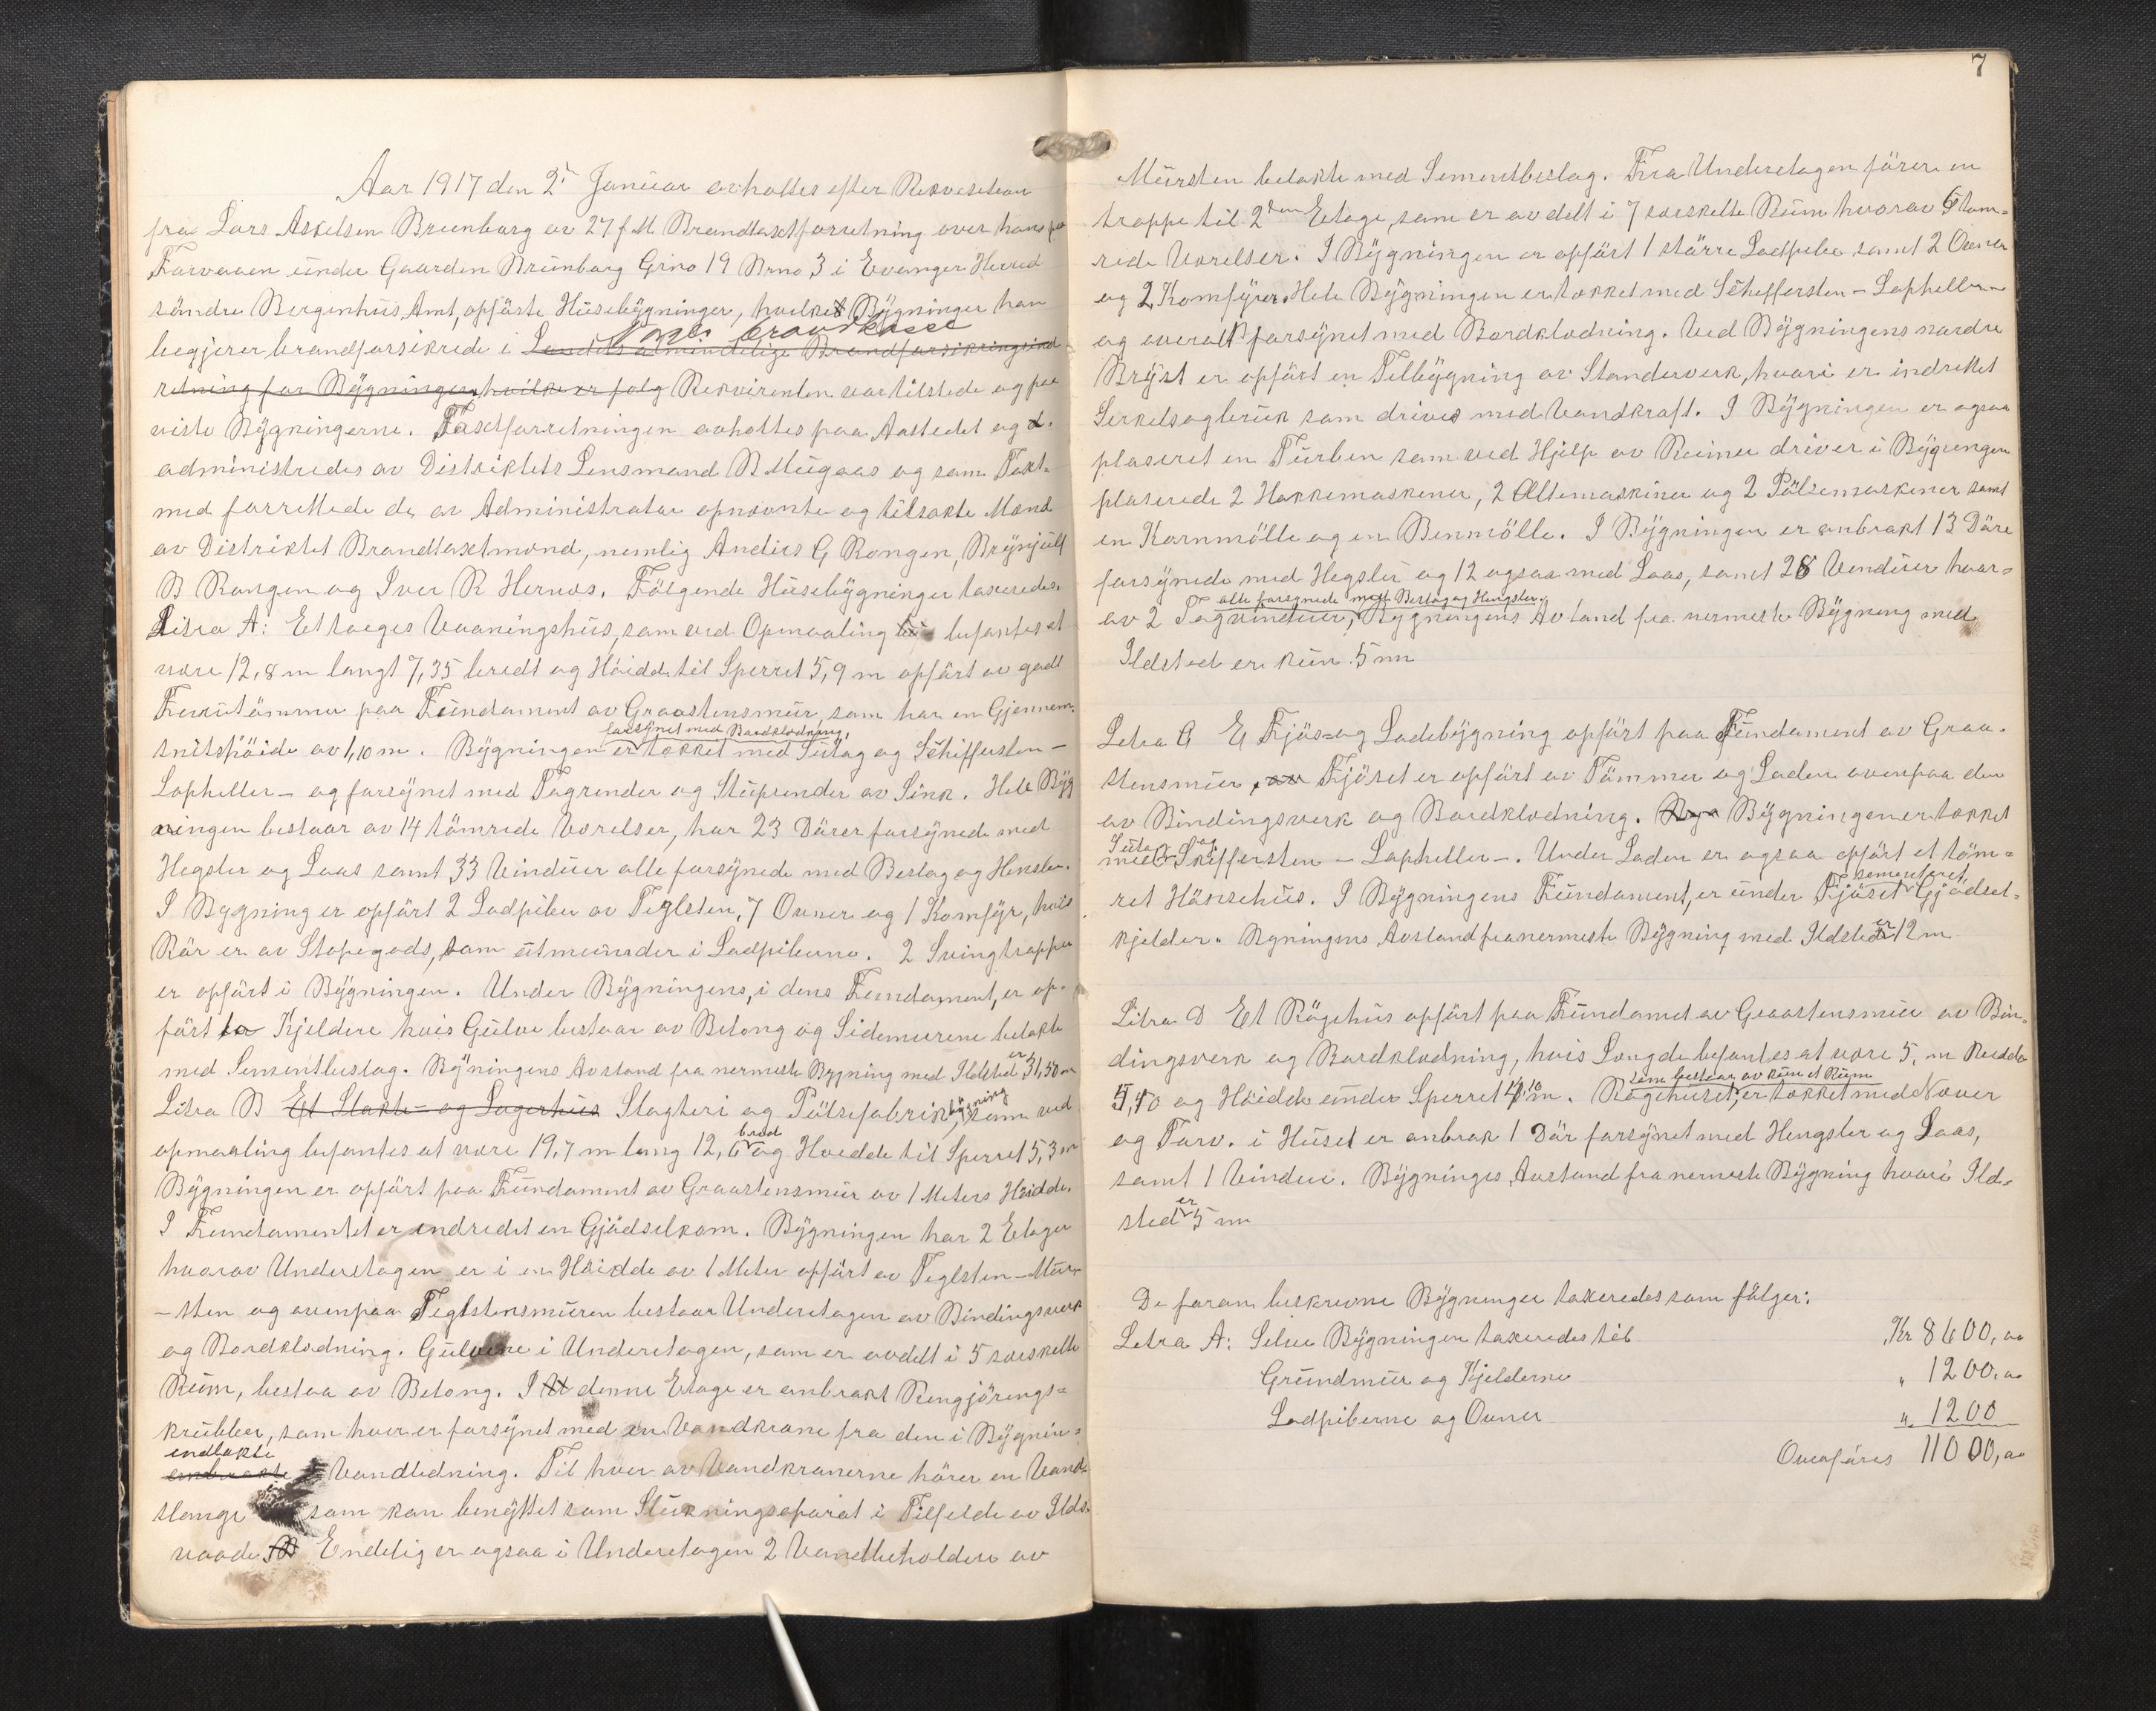 Aar 1917 den 2 Januar avholtes efter Rekvesition
fra Lars Askelsen Brunborg av 27 f M Brandtaxtforretning over hans pa
Farveien under Gaarden Brunborg Grno 19 Brno 3 i Evanger Herred
söndre Bergenhus Amt, opförte Husebygninger, hvilket Bygninger han
brandkasse
begjerer brandforsikrede i Landets almindelige Brandforsikringsind
retning for Bygninger hvilke er folg Rekvirenten var tilstede og paa
viste Bygningerne. Taxtforretningen avholtes paa Aastedet og
administredes av Distriktets Lensmand B Mugaas og som Taxt-
med forrettede de av Administrator opnævnte og tilsakte Mænd
av Distriktet Brandtaxtmænd, nemlig Anders G Rongen, Brynjulf
B Rongen og Iver R Hernes. Fölgende Husebygninger taxeredes.
Litra A: Et toeges Vaaningshus, som ved Opmaaling befantes at
være 12,8 m langt 7,35 bredt og Höidde til Sperret 5,9 m opfört av godt
Furutömmer paa Fundament av Graastensmur, som har en Gjennem-
forsynet med Bordklædning,
snitshöide av 1,10 m. Bygningen er tækket med Sutag og Schiffersten -
Lapheller - og forsynet med Tagrender og Stuprender av Sink. Hele Byg
ningen bestaar av 14 tömrede Værelser, har 23 Dörer forsynede med
Hegsler og Laas samt 33 Vinduer alle forsynede med Beslag og Hensler.
I Bygning er opfört 2 Lodpiber av Teglsten, 7 Ovner og 1 Komfyr, hvis
Rör er av Stöpegods, som utmunder i Lodpiberne. 2 Svingtrapper
er opfört i Bygningen. Under Bygningens, i dens Fundament, er op-
fört to Kjeldere hvis Gulve bestaar av Betong og Sidemurene belakte
er
med Sementbeslag. Byningens Avstand fra nermeste Bygning med Ildsted 31,50 m
bygning
Litra B Et Slakte- og Lagerhus Slagteri og Pölsefabrik, som ved
bred
opmaaling befantes at være 19,7 m lang 12,6 og Hoidde til Sperret 5,3 m
Bygningen er opfört paa Fundament av Graastensmur av 1 Meters Höidde.
I Fundamentet er indredet en Gjödselkom. Bygningen har 2 Etager
hvorav Underetagen er i en Höidde av 1 Meter opfört av Teglsten - Mur-
- sten og ovenpaa Teglstensmuren bestaar Underetagen av Bindingsverk
og Bordklædning. Gulvene i Underetagen, som er avdelt i 5 særskelte
Rum, bestaa av Betong. I denne Etage er anbrakt Rengjörings-
krubber, som hver er forsynet med en Vandkrane fra den i Bygnin-
indlakte
anbrakte Vandledning. Til hver av Vandkranerne hörer en Vand-
slange som kan benyttet som Slukningsaparat i Tilfelde av Ilds-
vaade. Endelig er ogsaa i Underetagen 2 Vandbeholdere av
7
Mursten belakte med Sementbeslag. Fra Underetagen förer en
trappe til 2den Etage, som er avdelt i 7 særskelte Rum hvorav 6 töm-
rede Værelser. I Bygningen er opfört 1 större Lodpibe samt 2 Ovner
og 2 Komfyrer. Hele Bygningen er tækket med Scheffersten - Lapheller -
og overalt forsynet med Bordklædning. Ved Bygningens nordre
Bryst er opfört en Tilbygning av Standerverk, hvori er indrettet
Serkelsagbruk som drives med Vandkraft. I Bygningen er ogsaa
plaseret en Turben som ved Hjelp av Reimer driver i Bygningen
plaserede 2 Hakkemaskener, 2 Ältemaskiner og 2 Pölsemaskener samt
en Kornmölle og en Benmölle. I Bygningen er anbrakt 13 Döre
forsynede med Hegsler og 12 ogsaa med Laas, samt 28 Venduer hvor-
alle forsynede med Beslag og Hengsler.
av 2 Tagvinduer, Bygningens Avtand fra nermeste Bygning med
Ildsted er kun 5 m
Letra C Et Fjös- og Ladebygning opfört paa Fundament av Graa-
stensmur, Fjöset er opfört av Tömmer og Laden ovenpaa den
av Bindingsverk og Bordklædning. Bygningen er tækket
Sutag
med Skiffersten - Lapheller -. Under Laden er ogsaa opfört et töm-
sementeret
ret Hönsehus. I Bygningens Fundament, er under Fjöset Gjödsel-
er
kjelder. Bgningens Avstand fra nermeste Bygning med Ildsted 12 m
Litra D Et Rögehus opfört paa Fundamet av Graastensmur av Bin-
dingsverk og Bordklædning, hvis Længde befantes at være 5, m Bredde
som bestaar av kun et Rum
5,40 og Höidde under Sperret 4,10 m. Rögehuset, er tækket med Næver
og Torv. i Huset er anbrak 1 Dör forsynet med Hengsler og Laas,
samt 1 Vindue. Bygninges Avstand fra nermeste Bygning hvori Ild-
er
sted 5 m
De foran beskrevne Bygninger taxeredes som fölger:
Letra A: Selve Bygningen taxeredes til Kr 8600,00
Grundmur og Kjelderne " 1200,00
Lodpiberne og Ovner " 1200
Overföres 11000,00